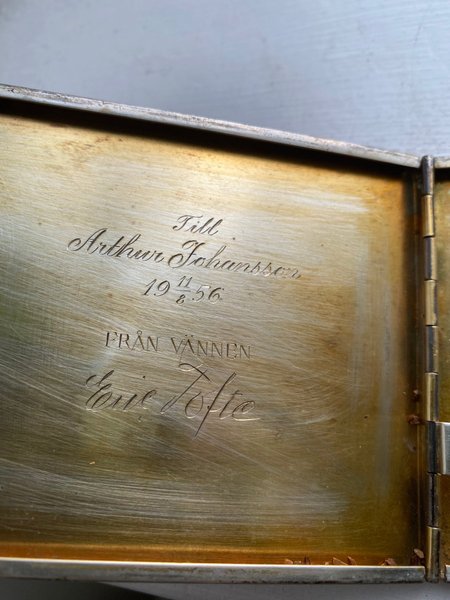 Till
Arthur Johansson
19 11/8 56
FRÅN VÄNNEN
Eric Tofte